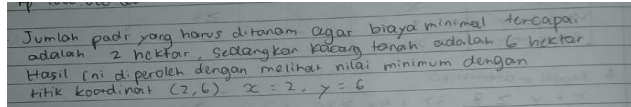 Jumlah padi yang harus ditanam agar biaya minimal tercapai
adalah 2 hektar, sedangkan kacang tanah adalah 6 hektar.
Hasil ini diperoleh dengan melihat nilai minimum dengan
titik koordinat (2,6). x = 2, y = 6